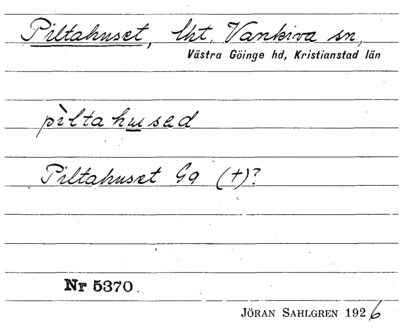 Piltahuset, lht, Vankiva sn,
Västra Göinge hd, Kristianstad län
pìltahused
Piltahuset Ga (+)?
Nr 5370.
JÖRAN SAHLGREN 1926